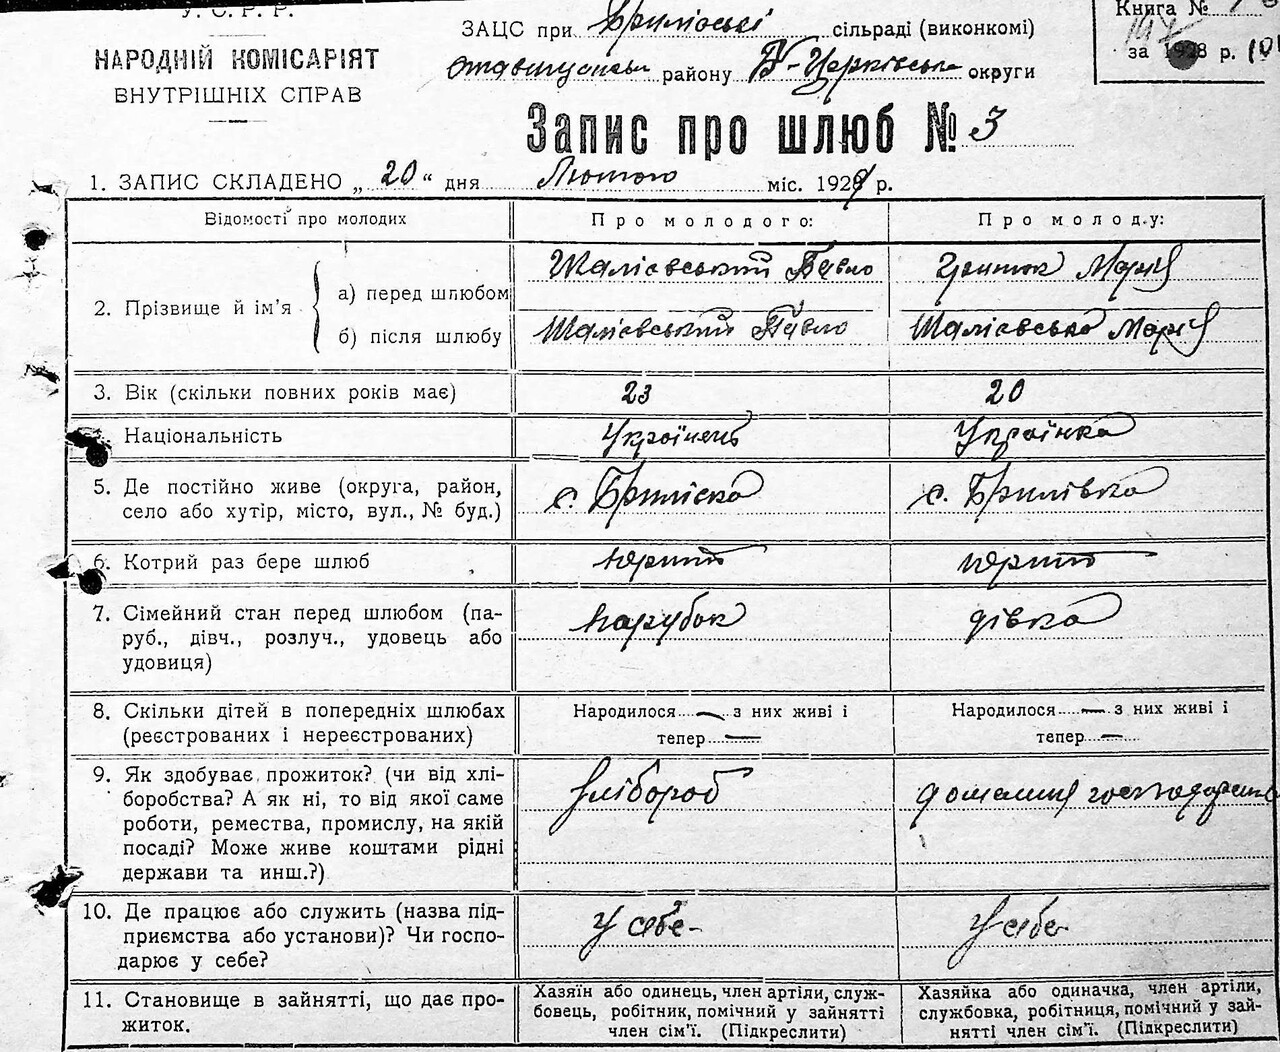 У. С. Р. Р.
НАРОДНІЙ КОМІСАРІЯТ
ВНУТРІШНІХ СПРАВ
ЗАЦС при Брилівські сільраді (виконкомі)
району Б-Церківська округи
Книга №
за 1928 р.
Запис про шлюб № 3
1. ЗАПИС СКЛАДЕНО „ 20 “ дня Лютого міс. 192 р.
Відомості про молодих
Про молодого:
Про молоду:
2. Прізвище й ім’я
а) перед шлюбом
Шалієвський Павло
Марія
б) після шлюбу
Шалієвський Павло
Шалієвська Марія
3. Вік (скільки повних років має)
23
20
Національність
Українець
Українка
5. Де постійно живе (округа, район,
село або хутір, місто, вул., № буд.)
с. Брилівка
с. Брилівка
6. Котрий раз бере шлюб
перший
перший
7. Сімейний стан перед шлюбом (па-
руб., дівч., розлуч., удовець або
удовиця)
парубок
дівка
8. Скільки дітей в попередніх шлюбах
(реєстрованих і нереєстрованих)
Народилося — з них живі і
тепер —
Народилося — з них живі і
тепер —
9. Як здобуває прожиток? (чи від хлі-
боробства? А як ні, то від якої саме
роботи, ремества, промислу, на якій
посаді? Може живе коштами рідні
держави та инш.?)
хлібороб
домашня
10. Де працює або служить (назва під-
приємства або установи)? Чи госпо-
дарює у себе?
У себе-
У себе
11. Становище в зайнятті, що дає про-
житок.
Хазяїн або одинець, член артілі, служ-
бовець, робітник, помічний у зайнятті
член сім’ї. (Підкреслити)
Хазяйка або одиначка, член артілі,
службовка, робітниця, помічний у зай-
нятті член сім’ї. (Підкреслити)